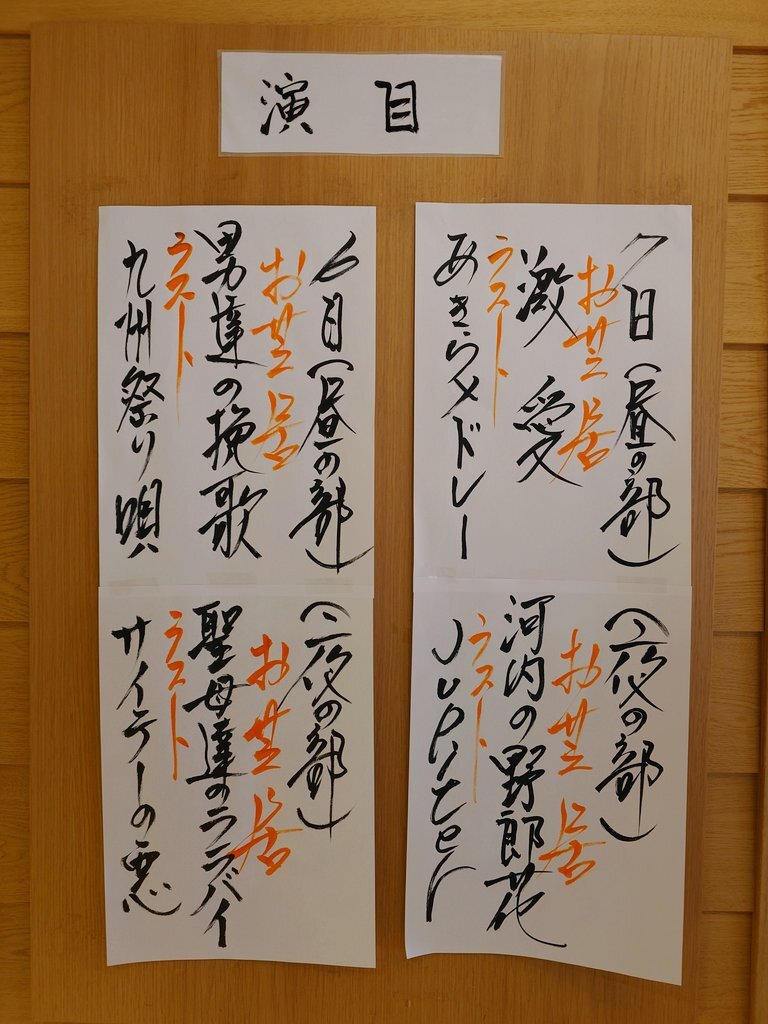 演目
7日(昼の部)
お芝居
激愛
ラスト
あきらメドレー
(夜の部)
お芝居
河内の野郎花
ラスト
Jupiter
6日(昼の部)
お芝居
男達の挽歌
ラスト
九州祭り唄
(夜の部)
お芝居
聖母達のララバイ
ラスト
サイテーの悪